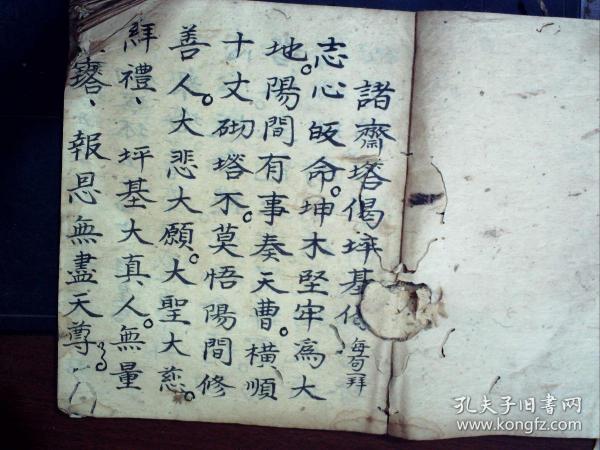 諸齋塔偈坪基偈每旬一拜
志心皈命。坤木堅牢為大
地。陽間有事奏天曹。橫順
十丈砌塔不。莫悟陽間修
善人。大悲大願。大聖大慈。
拜禮、坪基大真人。無量
寳塔、報恩無盡天尊
孔夫子旧书网
www.kongfz.com